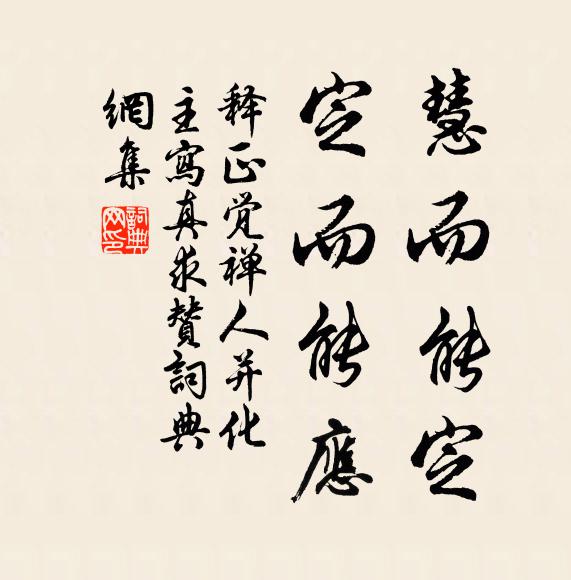 慧而能定
定而能應
释正觉禅人并化
主寫真求赞詞典
網集
詞典网印